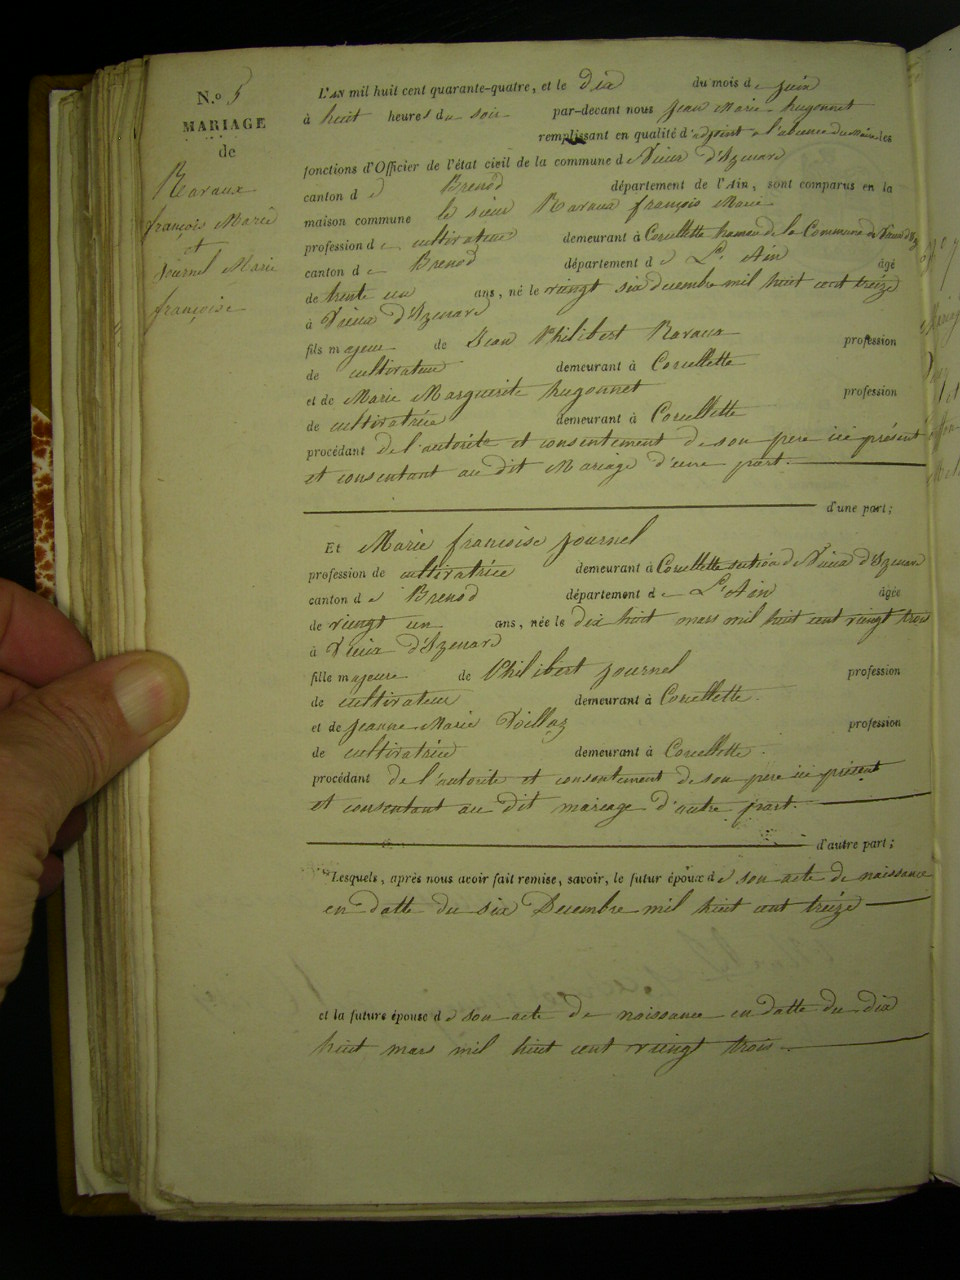 N.o 5
MARIAGE
de
Ravaux
françois Marie
et
Journel Marie
françoise
L'AN mil huit cent quarante-quatre, et le dix du mois de juin
à huit heures du soir par-devant nous Jean Marie hugonnet
remplissant en qualité d'adjoint a l'absence du maire les
fonctions d'Officier de l'état civil de la commune de Vieux d'Izenave
canton de Brenod département de l'Ain, sont comparus en la
maison commune le sieur Ravaux françois Marie
profession de cultivateur demeurant à Corcellette hameau de la Commune de Vieux d'Iz
canton de Brenod département de L'Ain âgé
de trente un ans, né le vingt six decembre mil huit cent treize
à Vieux d'Izenave
fils majeur de Jean Philibert Ravaux profession
de cultivateur demeurant à Corcellette
et de Marie Marguerite hugonnet profession
de cultivatrice demeurant à Corcellette
procédant de l'autorite et consentement de son pere ici présent
et consentant au dit Mariage d'une part.
d'une part;
Et Marie francoise journel
profession de cultivatrice demeurant à Corcellette section de Vieux d'Izenave
canton de Brenod département de L'Ain âgée
de vingt un ans, née le dix huit mars mil huit cent vingt trois
à Vieux d'Izenave
fille majeure de Philibert journel profession
de cultivateur demeurant à Corcellette.
et de jeanne Marie Villaz profession
de cultivatrice demeurant à Corcellette.
procédant de l'autorite et consentement de son pere ici présent
et consentant au dit mariage d'autre part.
d'autre part;
Lesquels, après nous avoir fait remise, savoir, le futur époux de son acte de naissance
en datte du six Decembre mil huit cent treize
et la future épouse de son acte de naissance en datte du dix
huit mars mil huit cent vingt trois